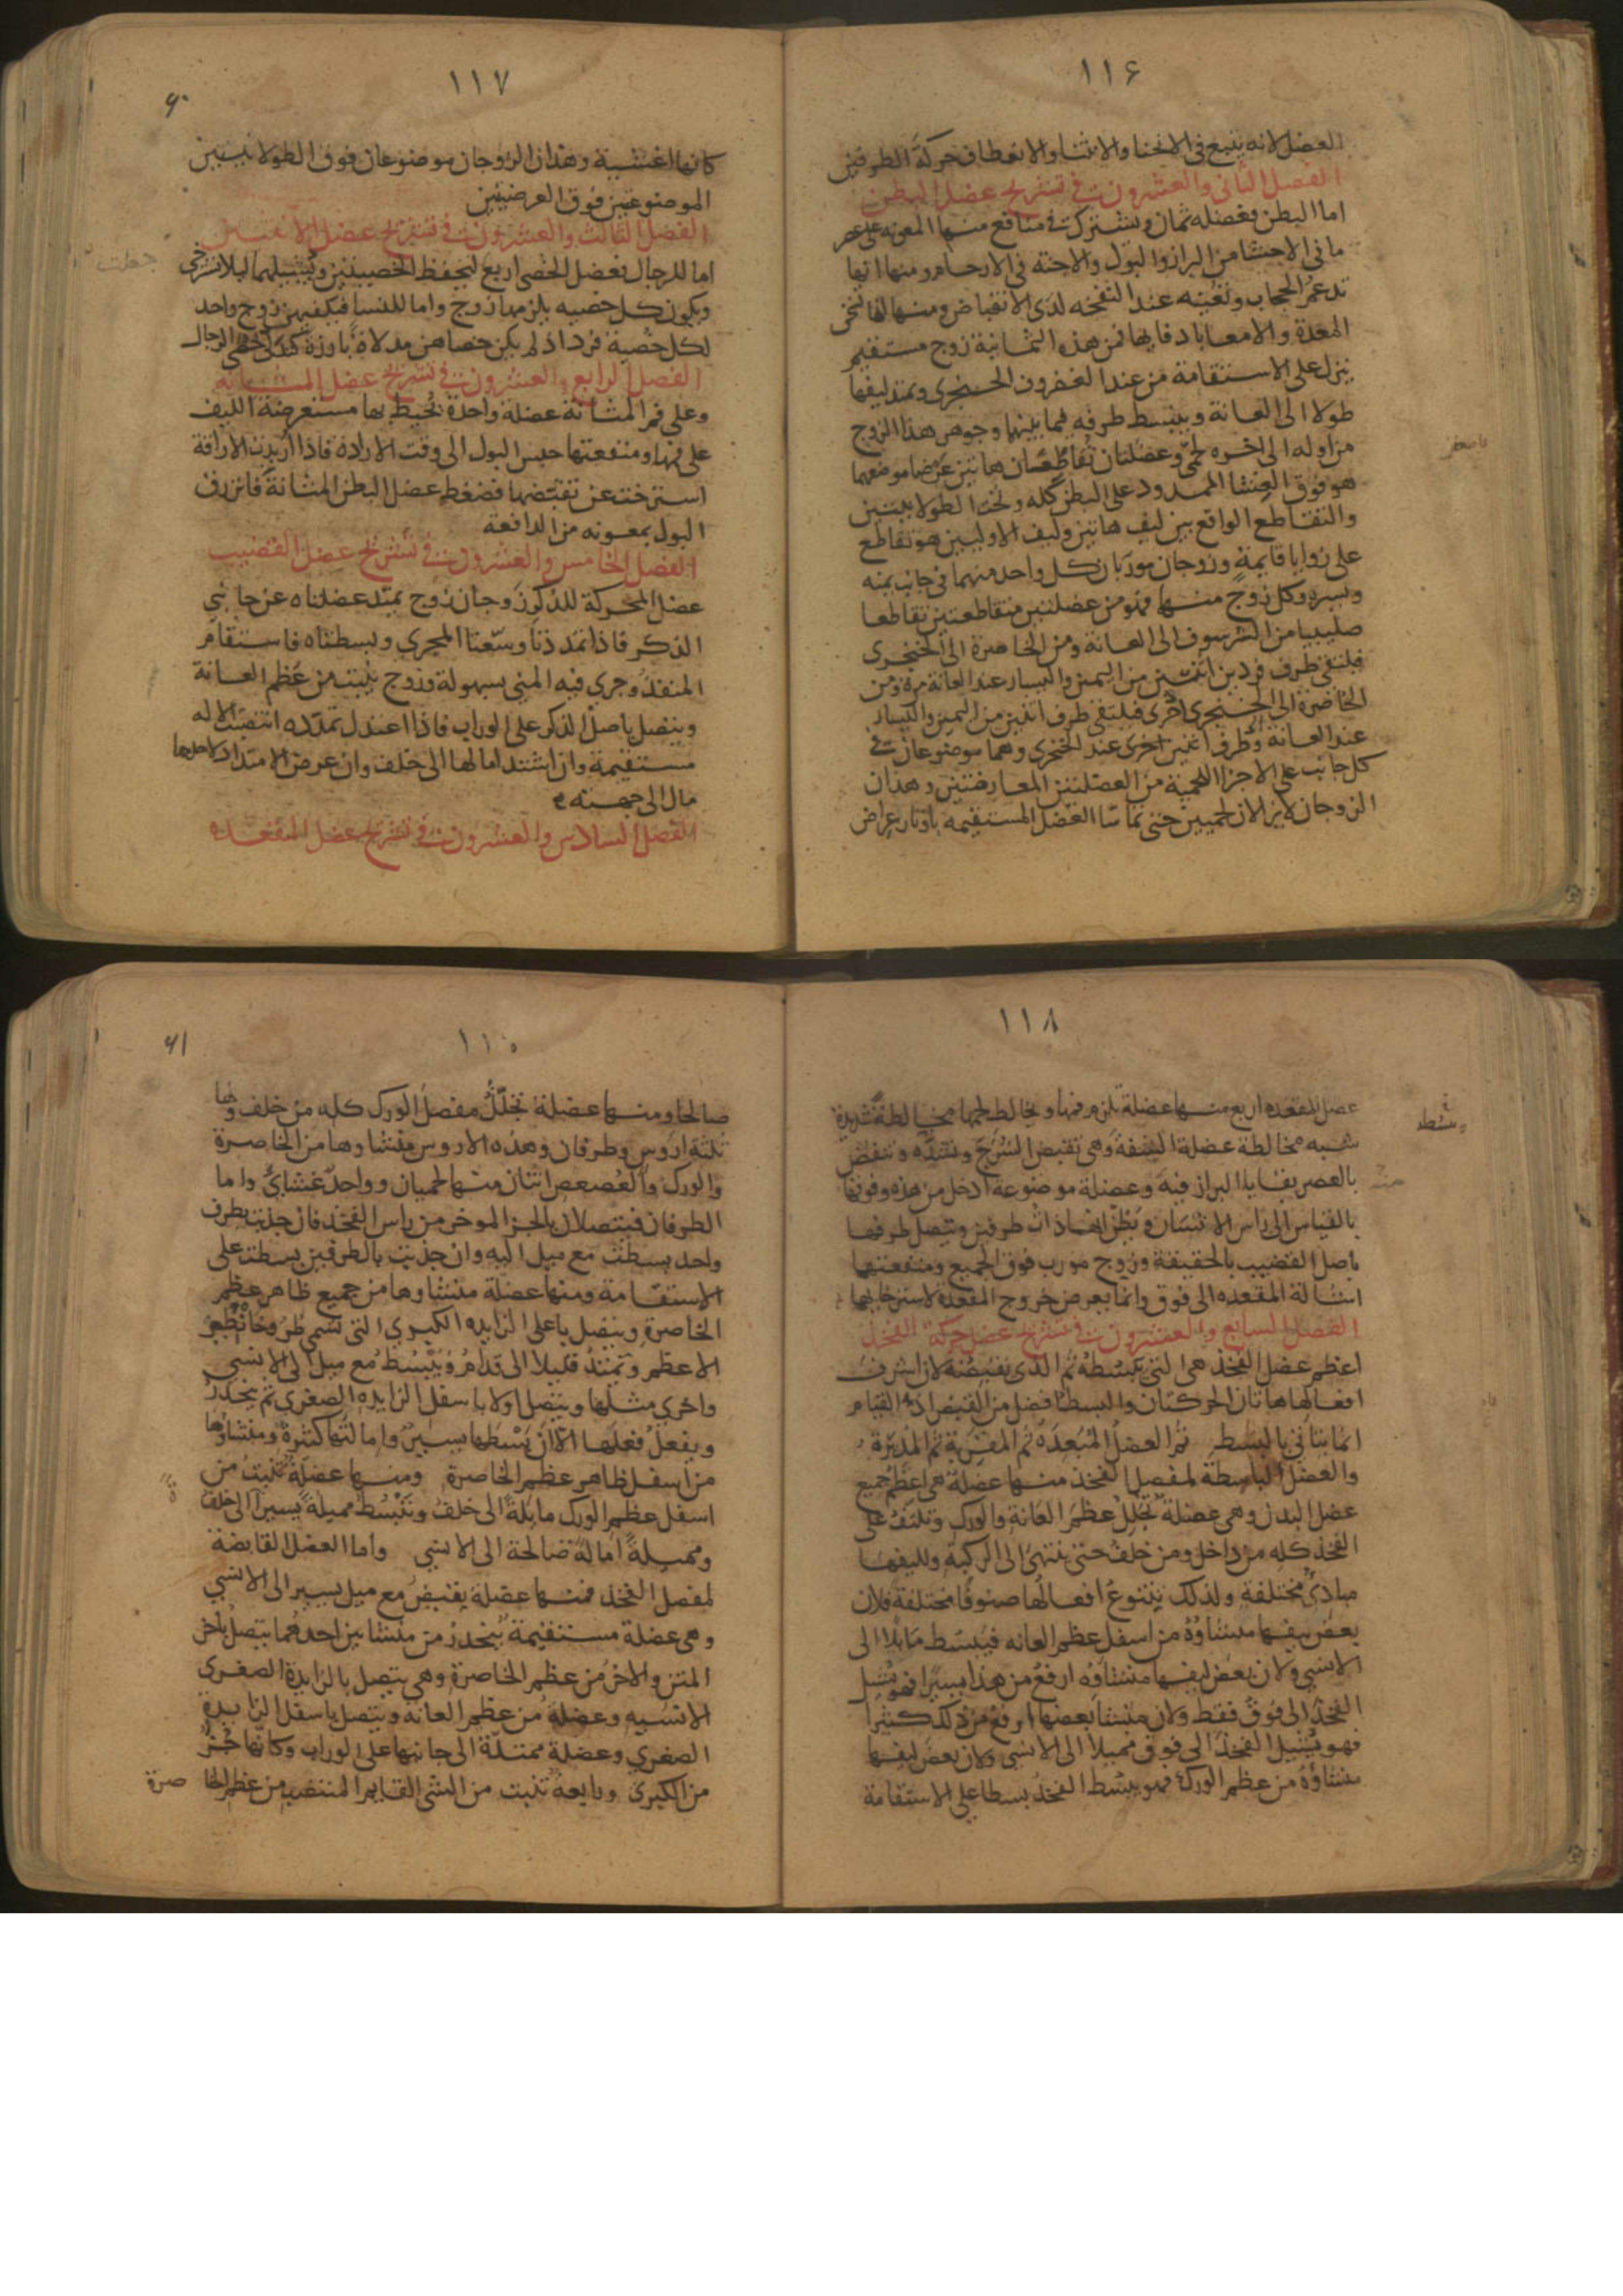 ١١۶
العضل لانه يتبع في الانحنا والانثنا والانعطاف حركة الطرفين
الفصل الثاني والعشرون في تشريح عضل البطن
اما البطن فعضله ثمان وتشترك في منافع منها المعونه على عصر
ما في الاحشا من البراز والبول والاجنه في الارحام ومنها انها
تدعم الحجاب وتعينه عند النفخه لدى الانقباض ومنها انها تسخن
المعدة والامعا بادفايها فمن هذه الثمانية زوج مستقيم
ينزل على الاستقامة من عند الغضروف الخنجري ويمتد ليفها
طولا الى العانة وينبسط طرفه فيما يليها وجوهر هذا الزوج
من اوله الى اخره لحمي وعضلتان تقاطعان هاتين عرضا موضعهما
هو فوق الغشا الممدود على البطن كله وتحت الطولانيتين
والتقاطع الواقع بين ليف هاتين وليف الاوليين هو تقاطع
على زوايا قايمة وزوجان موربان كل واحد منهما في جانب يمنه
ويسره وكل زوج منها فهو من عضلتين متقاطعتين تقاطعا
صليبيا من الشرسوف الى العانة ومن الخاصرة الى الخنجري
فيلتقي طرف فردين اثنين من اليمين واليسار عند العانة مرة ومن
الخاصرة الى الخنجري اخرى فيلتقي طرف اثنين من اليمين واليسار
عند العانة وطرفا اثنين اخرى عند الخنجري وهما موضوعان في
كل جانب على الاجزا اللحمية من العضلتين المعارضتين وهذان
الزوجان لا يزالان لحميين حتى تماسا العضل المستقيمه باوتار عراض
١١٧
كانها اغشية وهذان الزوجان موضوعان فوق الطولانيتين
الموضوعتين فوق العرضيتين
الفصل الثالث والعشرون في تشريح عضل الانثيين
اما للرجال فعضل الخصى اربع ليحفظ الخصيتين ويشيلهما ليلا تسترخي
ويكون كل خصيه يلزمها زوج واما للنسا فيكفيهن زوج واحد
لكل خصية فرد اذ لم يكن خصاهن مدلاة بارزة كتدلي خصى الرجال
الفصل الرابع والعشرون في تشريح عضل المثانه
وعلى فم المثانة عضلة واحدة تحيط بها مستعرضة الليف
على فمها ومنفعتها حبس البول الى وقت الارادة فاذا اريدت الاراقة
استرخت عن تقبضها فضغط عضل البطن المثانة فانزرق
البول بمعونه من الدافعة
الفصل الخامس والعشرون في تشريح عضل القضيب
عضل المحركة للذكر زوجان زوج يمتد عضلتاه عن جانبي
الذكر فاذا تمددتا وسعتا المجرى وبسطتاه فاستقام
المنفذ وجري فيه المني بسهولة وزوج ينبت من عظم العانة
ويتصل باصل الذكر على الوراب فاذا اعتدل تمدده انتصبت الاله
مستقيمة وان اشتد امالها الى خلف وان عرض الامتداد لاحدها
مال الى جهته
الفصل السادس والعشرون في تشريح عضل المقعده
١١٨
عضل المقعده اربع منها عضلة تلزم فمها وتخالط لحمها مخالطة شديدة
شبيه مخالطة عضلة الشفة وهي تقبض الشرج وتشده وتنفض
بالعصر بقايا البراز فيه وعضلة موضوعة ادخل من هذه وفوقها
بالقياس الى راس الانسان ويظن انها ذات طرفين ويتصل طرفها
باصل القضيب بالحقيقة وزوج مورب فوق الجميع ومنفعتها
اشالة المقعده الى فوق وانما يعرض خروج المقعدة لاسترخايها
الفصل السابع والعشرون في تشريح عضل حركة الفخذ
اعظم عضل الفخذ هي التي تبسطه ثم الذي تقبضه لان اشرف
افعالها هاتان الحركتان والبسط افضل من القبض اذ القيام
انما يتاتي بالبسط ثم العضل المبعده ثم المقربة ثم المديرة
والعضل الباسطة لمفصل الفخذ منها عضلة هي اعظم جميع
عضل البدن وهي عضلة تجلل عظم العانة والورك وتلتف على
الفخذ كله من داخل ومن خلف حتى تنتهى الى الركبة ولليفها
مبادئ مختلفة ولذلك يتنوع افعالها صنوفا مختلفة فلان
بعض ليفها منشاؤه من اسفل عظم العانه فيبسط مايلا الى
الانسي ولان بعض ليفها منشاؤه ارفع من هذا يسيرا فهو يشيل
الفخذ الى فوق فقط ولان منشا بعضها ارفع من ذلك كثيرا
فهو يشيل الفخذ الى فوق مميلا الى الانسي ولان بعض ليفها
منشاؤه من عظم الورك فهو يبسط الفخذ بسطا على الاستقامة
صالحا ومنها عضلة تجلل مفصل الورك كله من خلف ولها
ثلثة اروس وطرفان وهذه الاروس منشاوها من الخاصرة
والورك والعصعص اثنان منها لحميان وواحد غشاي واما
الطرفان فيتصلان بالجز الموخر من راس الفخذ فان جذبت بطرف
واحد بسطت مع ميل اليه وان جذبت بالطرفين بسطت على
الاستقامة ومنها عضلة منشاوها من جميع ظاهر عظم
الخاصرة ويتصل باعلى الزايده الكبرى التي تسمى طروخانطير
الاعظم وتمتد قليلا الى قدام ويبسط مع ميل الى الانسي
واخرى مثلها ويتصل اولا باسفل الزايده الصغرى ثم ينحدر
ويفعل فعلها الا ان بسطها يسير وامالتها كثيرة ومنشاوها
من اسفل ظاهر عظم الخاصرة ومنها عضلة تنبت من
اسفل عظم الورك مايلة الى خلف وتبسط مميلة يسيرا الى خلف
ومميلة امالة صالحة الى الانسي واما العضل القابضة
لمفصل الفخذ فمنها عضلة يقبض مع ميل يسير الى الانسي
وهي عضلة مستقيمة ينحدر من منشاين احدهما يتصل باخر
المتن والاخر من عظم الخاصرة وهي يتصل بالزايدة الصغرى
الانسيه وعضلة من عظم العانه ويتصل باسفل الزايدة
الصغرى وعضلة ممتدة الى جانبها على الوراب وكانها جز
من الكبرى ورابعة تنبت من الشي القايم المنتصب من عظم الخا صرة